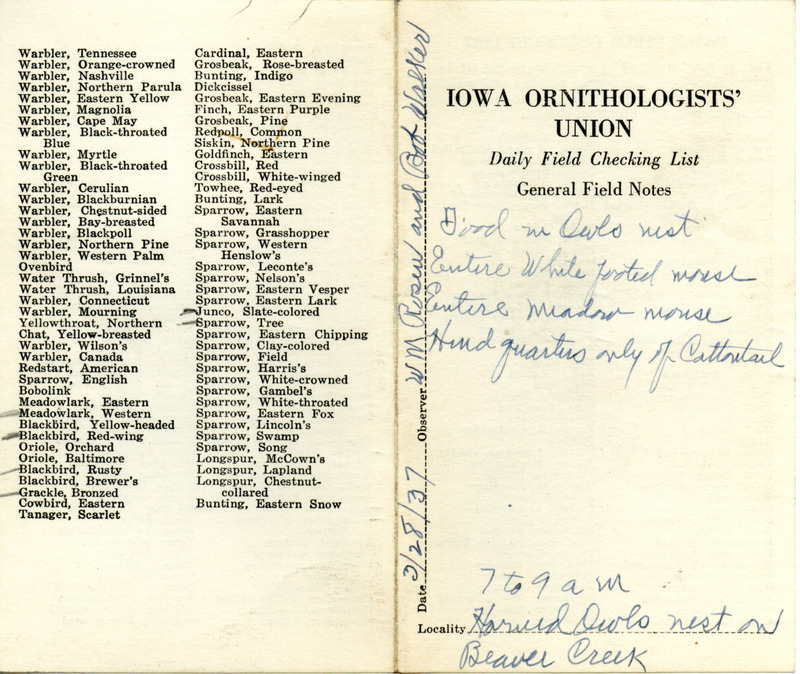 Warbler, Tennessee
Warbler, Orange-crowned
Warbler, Nashville
Warbler, Northern Parula
Warbler, Eastern Yellow
Warbler, Magnolia
Warbler, Cape May
Warbler, Black-throated
Blue
Warbler, Myrtle
Warbler, Black-throated
Green
Warbler, Cerulian
Warbler, Blackburnian
Warbler, Chestnut-sided
Warbler, Bay-breasted
Warbler, Blackpoll
Warbler, Northern Pine
Warbler, Western Palm
Ovenbird
Water Thrush, Grinnel's
Water Thrush, Louisiana
Warbler, Connecticut
Warbler, Mourning
Yellowthroat, Northern
Chat, Yellow-breasted
Warbler, Wilson's
Warbler, Canada
Redstart, American
Sparrow, English
Bobolink
Meadowlark, Eastern
Meadowlark, Western
Blackbird, Yellow-headed
Blackbird, Red-wing
Oriole, Orchard
Oriole, Baltimore
Blackbird, Rusty
Blackbird, Brewer's
Grackle, Bronzed
Cowbird, Eastern
Tanager, Scarlet
Cardinal, Eastern
Grosbeak, Rose-breasted
Bunting, Indigo
Dickcissel
Grosbeak, Eastern Evening
Finch, Eastern Purple
Grosbeak, Pine
Redpoll, Common
Siskin, Northern Pine
Goldfinch, Eastern
Crossbill, Red
Crossbill, White-winged
Towhee, Red-eyed
Bunting, Lark
Sparrow, Eastern
Savannah
Sparrow, Grasshopper
Sparrow, Western
Henslow's
Sparrow, Leconte's
Sparrow, Nelson's
Sparrow, Eastern Vesper
Sparrow, Eastern Lark
Junco, Slate-colored
Sparrow, Tree
Sparrow, Eastern Chipping
Sparrow, Clay-colored
Sparrow, Field
Sparrow, Harris's
Sparrow, White-crowned
Sparrow, Gambel's
Sparrow, White-throated
Sparrow, Eastern Fox
Sparrow, Lincoln's
Sparrow, Swamp
Sparrow, Song
Longspur, McCown's
Longspur, Lapland
Longspur, Chestnut-
collared
Bunting, Eastern Snow
Date 2/28/37 Observer W M Rosen and Bob Walker
IOWA ORNITHOLOGISTS'
UNION
Daily Field Checking List
General Field Notes
Food in Owls nest
Entire White footed mouse
Entire meadow mouse
Hind quarters only of Cottontail
7 to 9 a m
Locality Horned Owls nest on
Beaver Creek